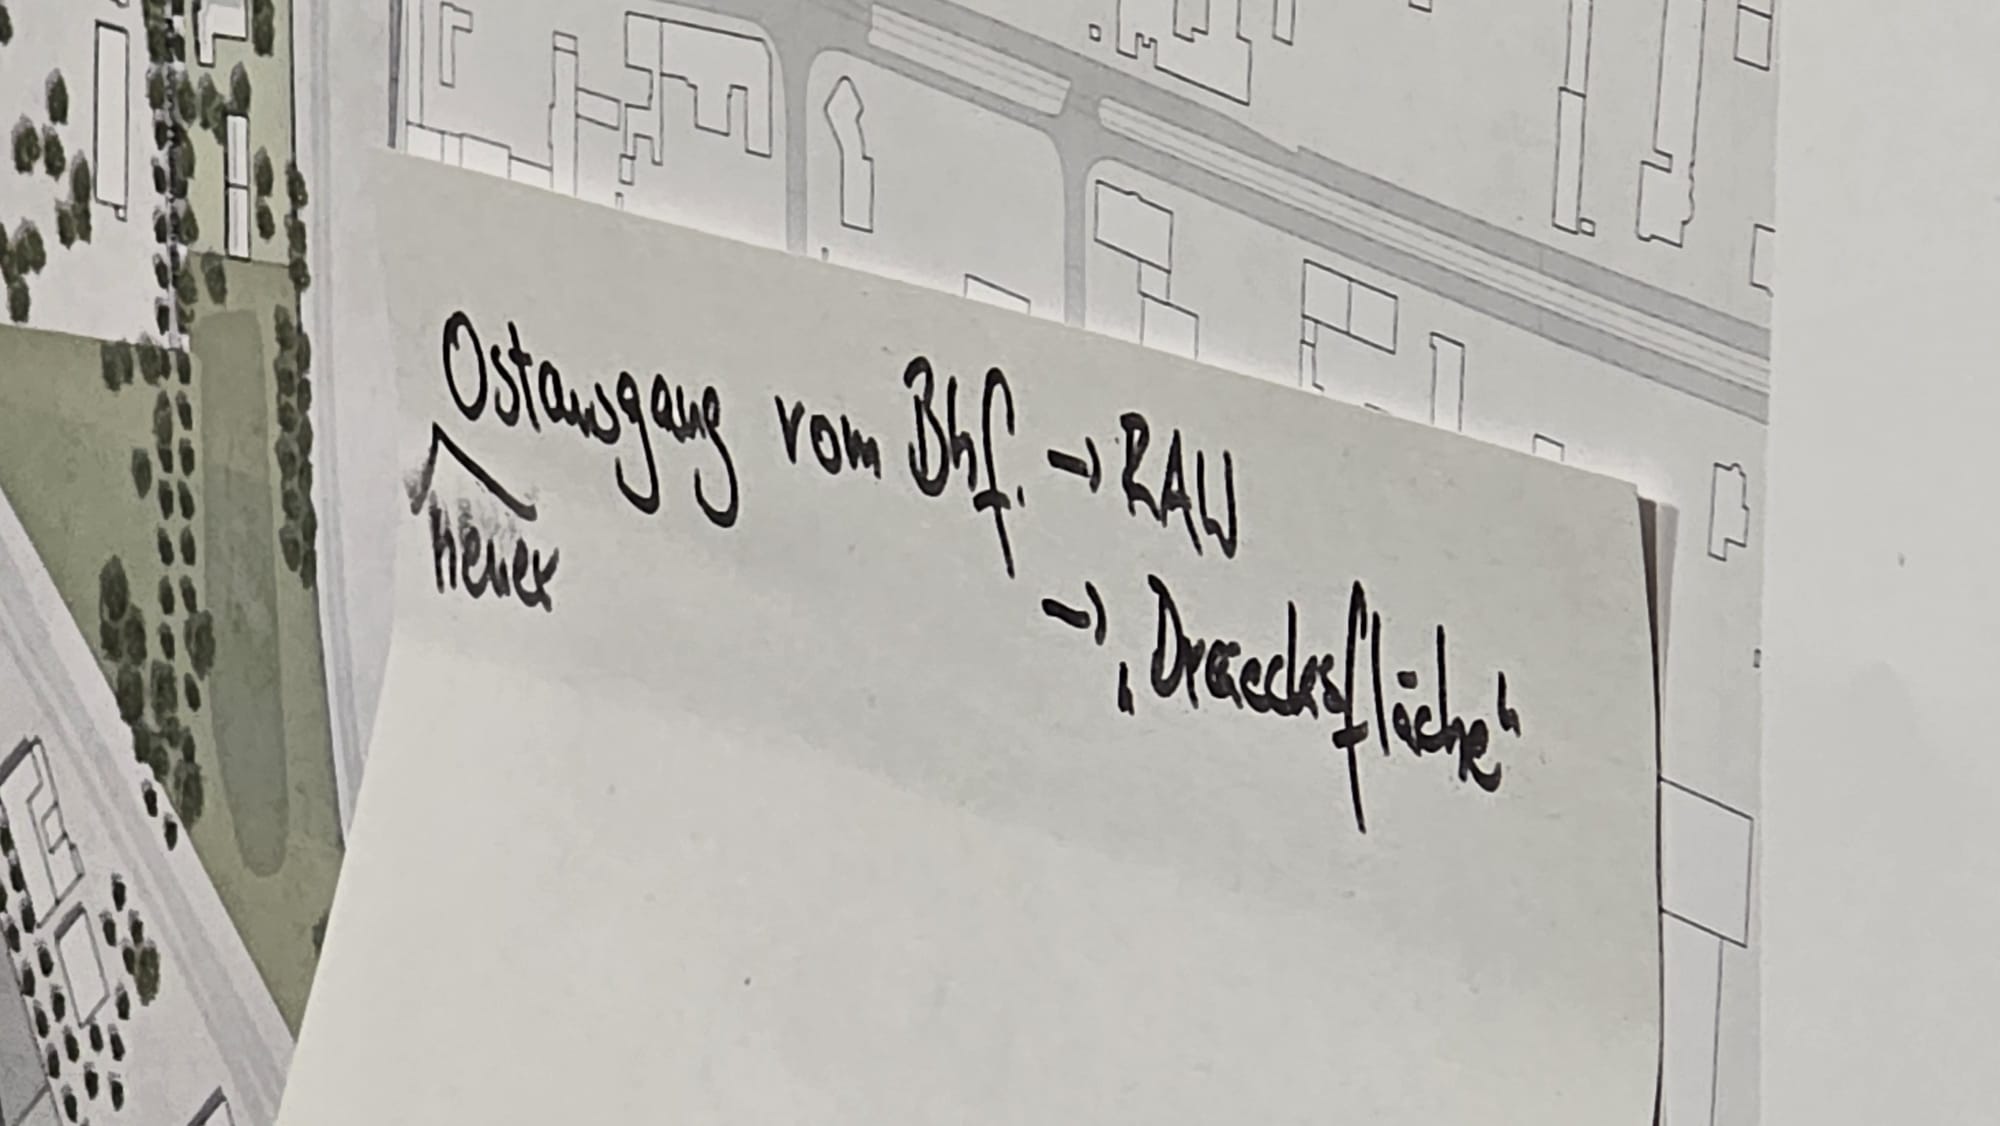 Ostausgang vom Bhf. → RAW
neuer
→ „Dreiecksfläche“